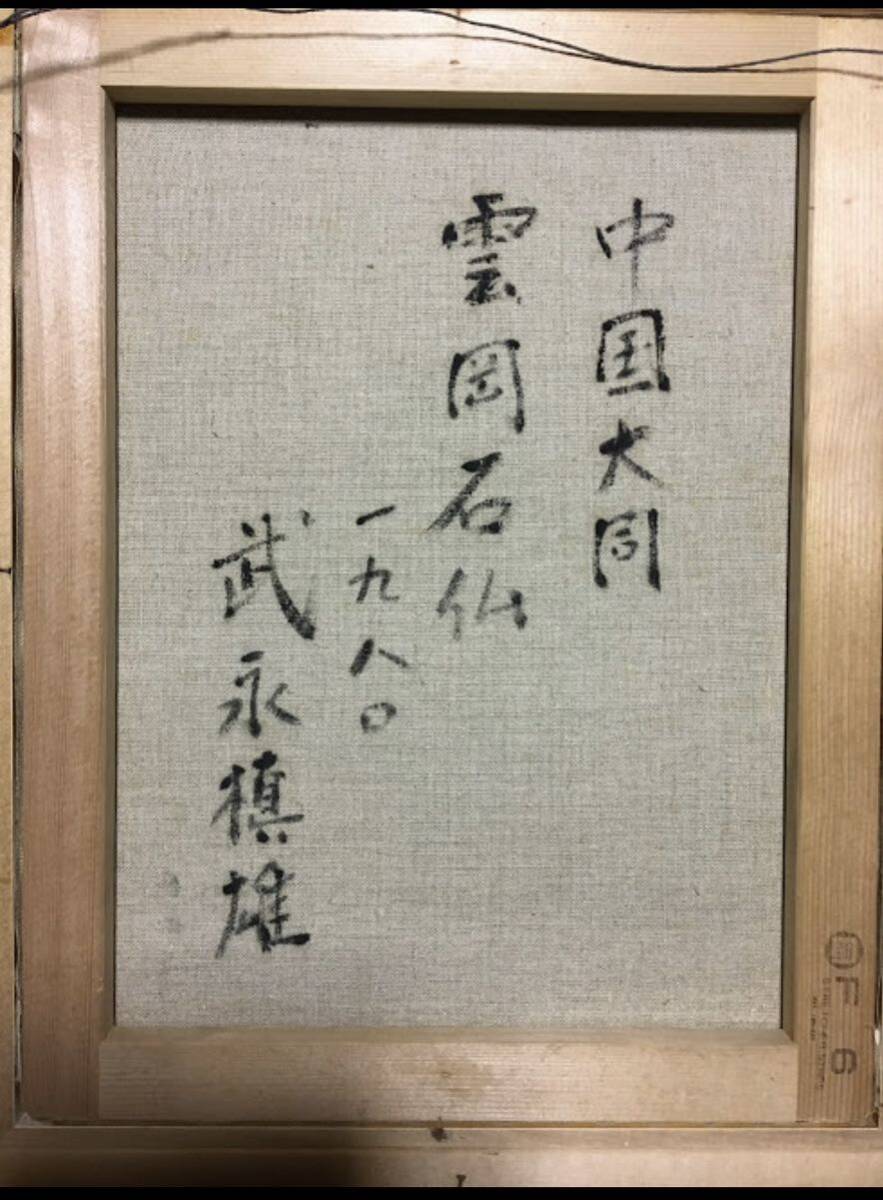 中国大同
雲岡石仏
一九八〇
武永槙雄
F6